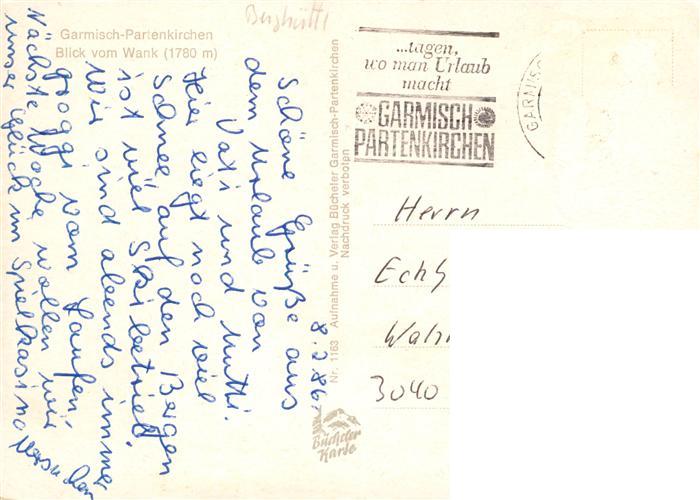 Garmisch-Partenkirchen
Blick vom Wank (1780 m)
Berghütte
8.2.86
Schöne Grüße aus
dem Urlaub von
Vati und Mutti.
Hier liegt noch viel
Schnee auf den Bergen
ist viel Skibetrieb.
Wir sind abends immer
groggi vom Laufen,
Nächste Woche wollen wir
unser Glück im Spielkasino versuchen
Nr. 1163 Aufnahme u. Verlag Bücheter Garmisch-Partenkirchen
Nachdruck verboten
Bücheter
Karte
...tagen,
wo man Urlaub
macht
GARMISCH
PARTENKIRCHEN
GARMISC
Herrn
3040